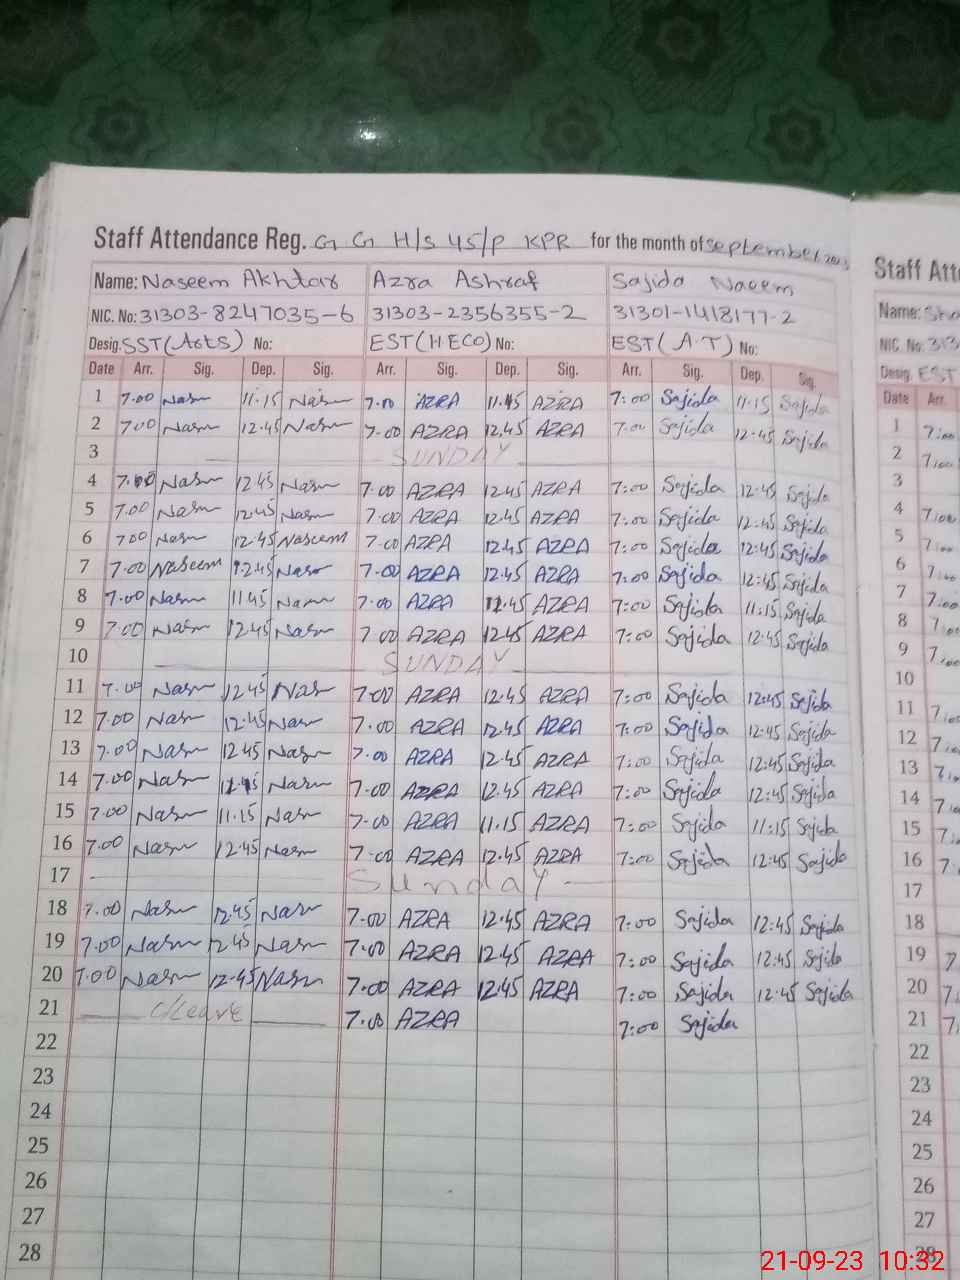 Staff Attendance Reg. G G H/S 45/P KPR for the month of September 2023
Name: Naseem Akhtar Azra Ashraf Sajida Naeem
NIC. No: 31303-8247035-6 31303-2356355-2 31301-1418177-2
Desig. SST(Asts) No: EST(HECO) No: EST(A.T) No:
Date Arr. Sig. Dep. Sig. Arr. Sig. Dep. Sig. Arr. Sig. Dep. Sig.
1 7.00 Nasm 11.15 Nasm 7.00 AZRA 11.45 AZRA 7:00 Sajida 11:15 Sajida
2 7.00 Nasm 12.45 Nasm 7.00 AZRA 12.45 AZRA 7:00 Sajida 12:45 Sajida
3 SUNDAY
4 7.00 Nasm 12.45 Nasm 7.00 AZRA 12.45 AZRA 7:00 Sajida 12:45 Sajida
5 7.00 Nasm 12.45 Nasm 7.00 AZRA 12.45 AZRA 7:00 Sajida 12:45 Sajida
6 7.00 Nasm 12.45 Naseem 7.00 AZRA 12.45 AZRA 7:00 Sajida 12:45 Sajida
7 7.00 Naseem 12.45 Nasm 7.00 AZRA 12.45 AZRA 7:00 Sajida 12:45 Sajida
8 7.00 Nasm 11.45 Nasm 7.00 AZRA 12.45 AZRA 7:00 Sajida 11:15 Sajida
9 7.00 Nasm 12.45 Nasm 7.00 AZRA 12.45 AZRA 7:00 Sajida 12:45 Sajida
10 SUNDAY
11 7.00 Nasm 12.45 Nasm 7.00 AZRA 12.45 AZRA 7:00 Sajida 12:45 Sajida
12 7.00 Nasm 12.45 Nasm 7.00 AZRA 12.45 AZRA 7:00 Sajida 12:45 Sajida
13 7.00 Nasm 12.45 Nasm 7.00 AZRA 12.45 AZRA 7:00 Sajida 12:45 Sajida
14 7.00 Nasm 12.45 Nasm 7.00 AZRA 12.45 AZRA 7:00 Sajida 12:45 Sajida
15 7.00 Nasm 11.15 Nasm 7.00 AZRA 11.15 AZRA 7:00 Sajida 11:15 Sajida
16 7.00 Nasm 12.45 Nasm 7.00 AZRA 12.45 AZRA 7:00 Sajida 12:45 Sajida
17 Sunday
18 7.00 Nasm 12.45 Nasm 7.00 AZRA 12.45 AZRA 7:00 Sajida 12:45 Sajida
19 7.00 Nasm 12.45 Nasm 7.00 AZRA 12.45 AZRA 7:00 Sajida 12:45 Sajida
20 7.00 Nasm 12.45 Nasm 7.00 AZRA 12.45 AZRA 7:00 Sajida 12:45 Sajida
21 C/Leave 7.00 AZRA 7:00 Sajida
22
23
24
25
26
27
28
Staff
Name:
NIC. No: 313
Desig. EST
Date Arr.
1 7:00
2 7:00
3
4 7:00
5 7:00
6 7:00
7 7:00
8 7:00
9 7:00
10
11 7
12 7
13 7
14 7
15 7
16 7
17
18
19 7
20 7
21 7
22
23
24
25
26
27
28
21-09-23 10:32